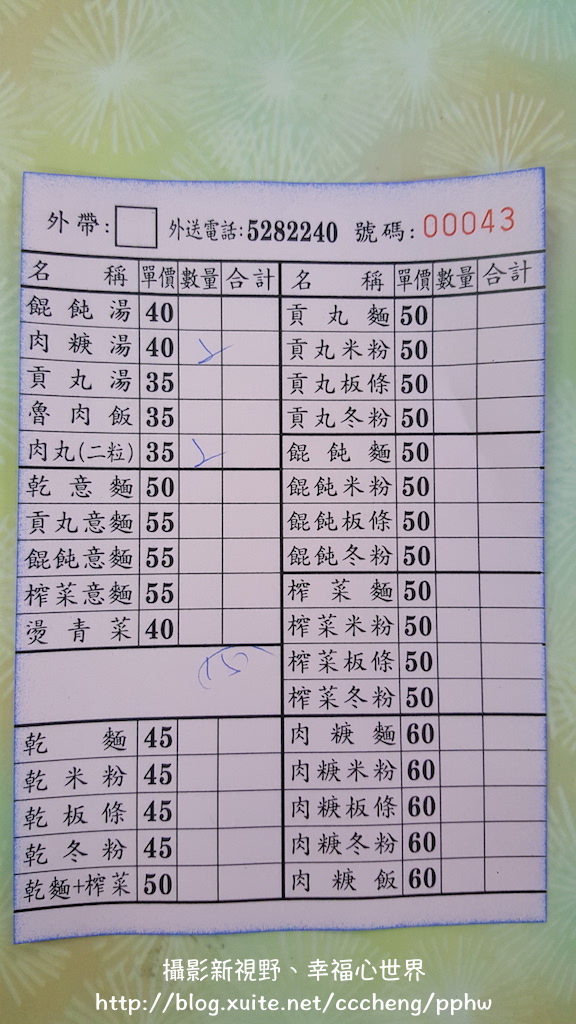 外帶: 外送電話:5282240 號碼: 00043
名稱 單價 數量 合計
餛飩湯 40
肉糎湯 40 2
貢丸湯 35
魯肉飯 35
肉丸(二粒) 35 2
乾意麵 50
貢丸意麵 55
餛飩意麵 55
榨菜意麵 55
燙青菜 40
150
乾麵 45
乾米粉 45
乾板條 45
乾冬粉 45
乾麵+榨菜 50
名稱 單價 數量 合計
貢丸麵 50
貢丸米粉 50
貢丸板條 50
貢丸冬粉 50
餛飩麵 50
餛飩米粉 50
餛飩板條 50
餛飩冬粉 50
榨菜麵 50
榨菜米粉 50
榨菜板條 50
榨菜冬粉 50
肉糎麵 60
肉糎米粉 60
肉糎板條 60
肉糎冬粉 60
肉糎飯 60
攝影新視野、幸福心世界
http://blog.xuite.net/cccheng/pphw